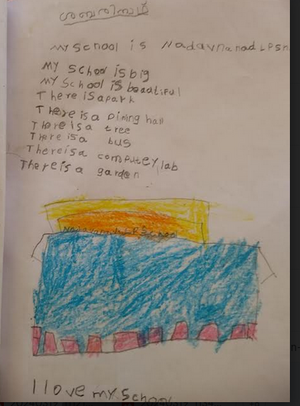 My school is Nadavnanad LPSn
My School is big
My School is beautiful
There Is a park
There is a Dining hall
There Is a tree
There is a bus
There is a computey lab
There is a garden
I love my School